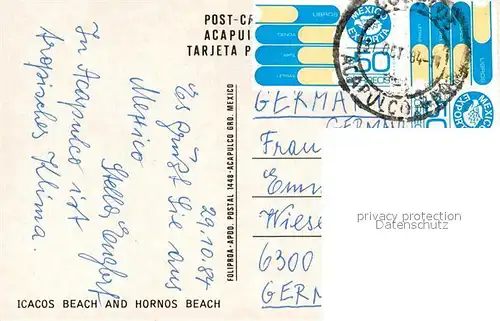 POST-CA
ACAPUL
TARJETA P
MEXICO
EXPORTA
50
LIBROS
OCT 84
ACAPULCO
MEXICO
EXPORTA
50
29.10.84
Es grüßt Sie aus
Mexico
In Acapulco ist
tropisches Klima.
FOLIPROA-APDO. POSTAL 1448-ACAPULCO GRO. MEXICO
GERMA
GERMA
Frau
Wiese
6300
GERM
privacy protection
Datenschutz
ICACOS BEACH AND HORNOS BEACH